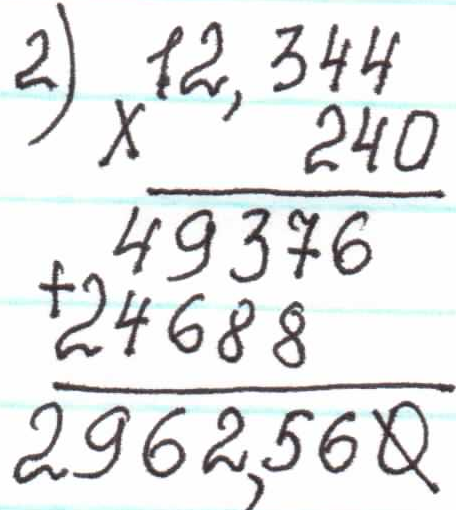 2) 12,344
x 240
49376
+24688
2962,560